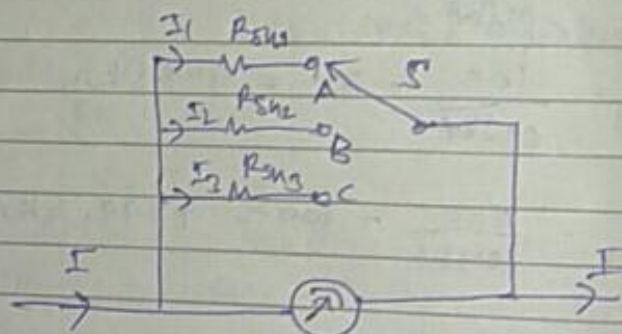 I1 Rsh1
S
A
I2 Rsh2
B
I3 Rsh3
C
I
I